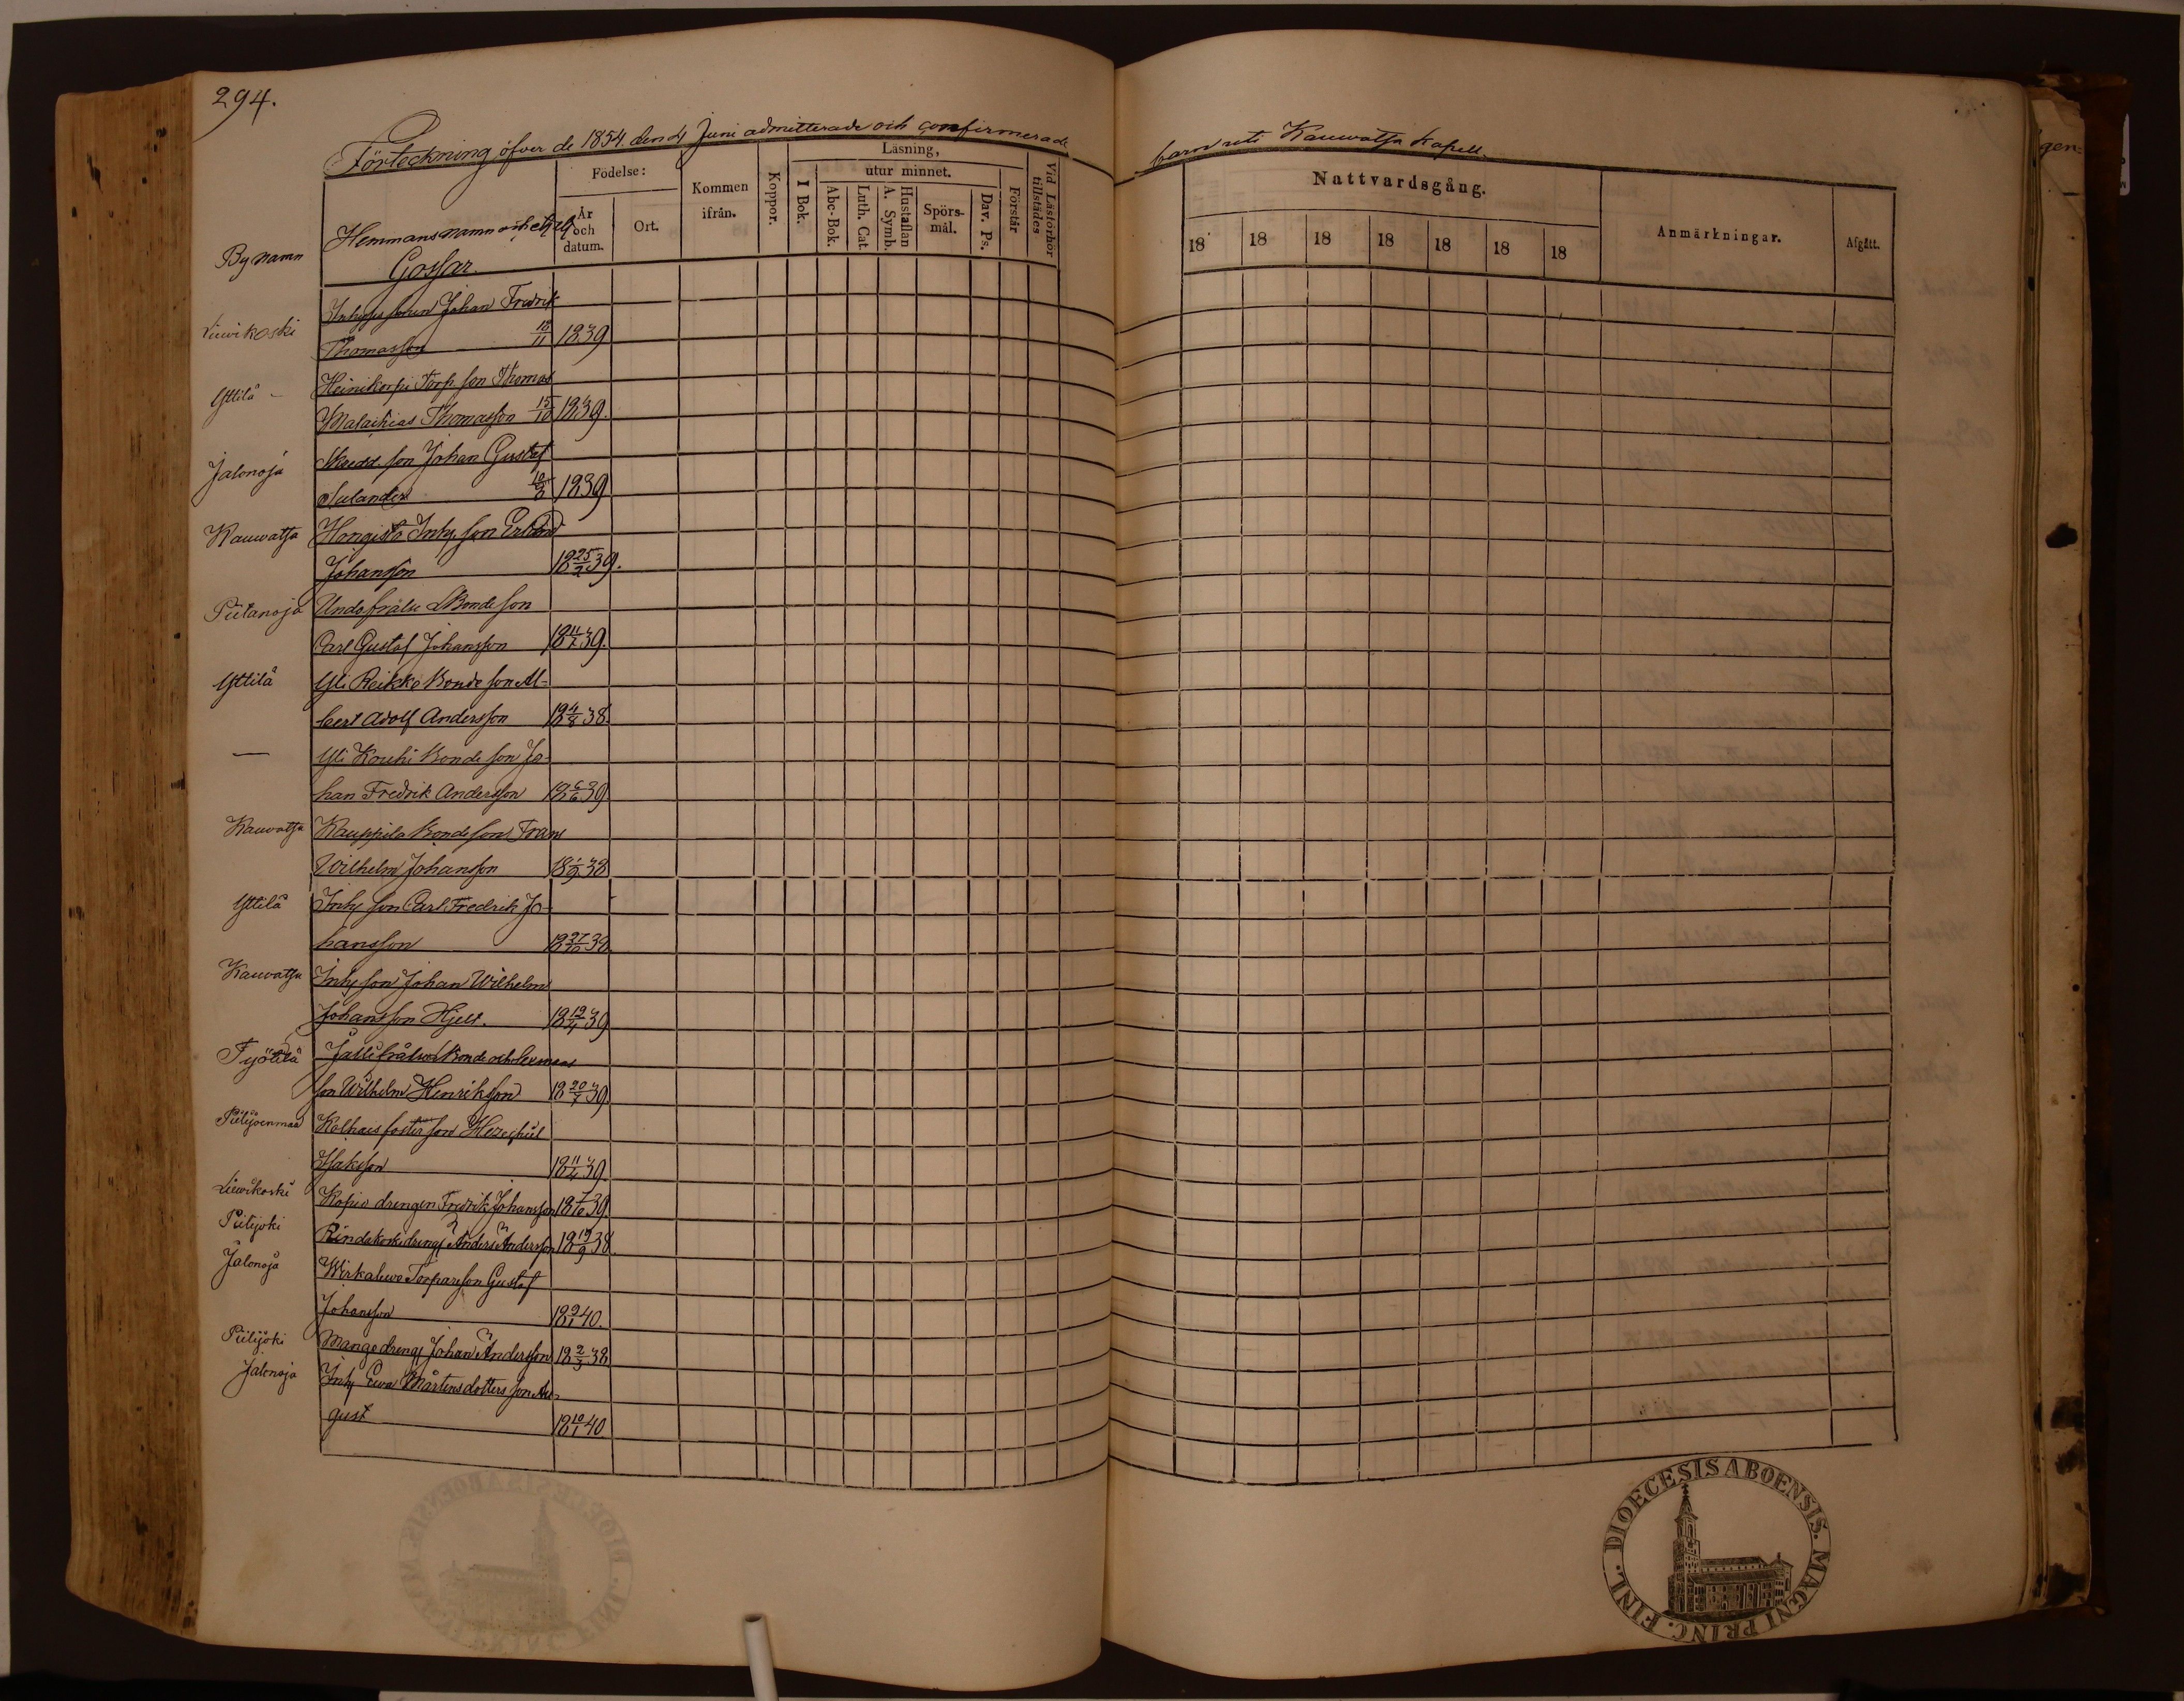 294.
Förteckning öfver de 1854 den 4 Juni admitterade och confirmerade barn uti Kauwatsa Kapell.
By namn
Hemmans namn och
Gossar.
Födelse:
År och datum.
Ort.
Kommen ifrån.
Koppor.
Läsning,
I Bok.
utur minnet.
Abc-Bok.
Luth. Cat.
Hustaflan A. Symb.
Spörsmål.
Dav. Ps.
Förstår
Vid Läsförhör tillstädes
Nattvardsgång.
18 18 18 18 18 18 18
Anmärkningar.
Afgått.
Liewikoski
Inhyses sonen Johan Fredrik
Thomasson 18/11 1839
Yttilä
Heinikorpi Torp. son Thomas
Malachias Thomasson 15/10 1839.
Jalonoja
Skredd. son Johan Gustaf
Sulander 10/3 1839
Kauwatsa
Hongisto Inhy. son Erland
Johansson 18 25/2 39.
Piilanoja
Undsfrälse Bondeson
Carl Gustaf Johansson 18 11/7 39.
Yttilä
Yli Reikko Bonde son Al-
bert Adolf Andersson 18 4/8 38.
—
Yli Kouhi Bonde son Jo-
han Fredrik Andersson 18 6/6 39.
Kauwatsa
Kauppila Bondeson Frans
Wilhelm Johansson 18 1/9 38
Yttilä
Inhy son Carl Fredrik Jo-
hansson 18 27/10 38
Kauwatsa
Inhy son Johan Wilhelm
Johansson Hjelt. 18 19/4 39
Työtilä
Jalli Bonde och
son Wilhelm Henriksson 18 20/7 39
Piilijoenmaa
Kolhais foster son Hezechiel
Isaksson 18 11/4 39.
Liewikoski
Kopio drengen Fredrik Johansson 18 7/6 39.
Piilijoki
Rindakoski dreng Anders Andersson 18 19/9 38.
Jalonoja
Torpareson Gustaf
Johansson 18 9/1 40.
Piilijoki
Mange dreng Johan Andersson 18 2/3 38
Jalonoja
Inhy Ewa Mårtensdotters son Au-
gust 18 10/1 40
gen=
DIOECESIS ABOENSIS. MAGNI PRINC. FINL.